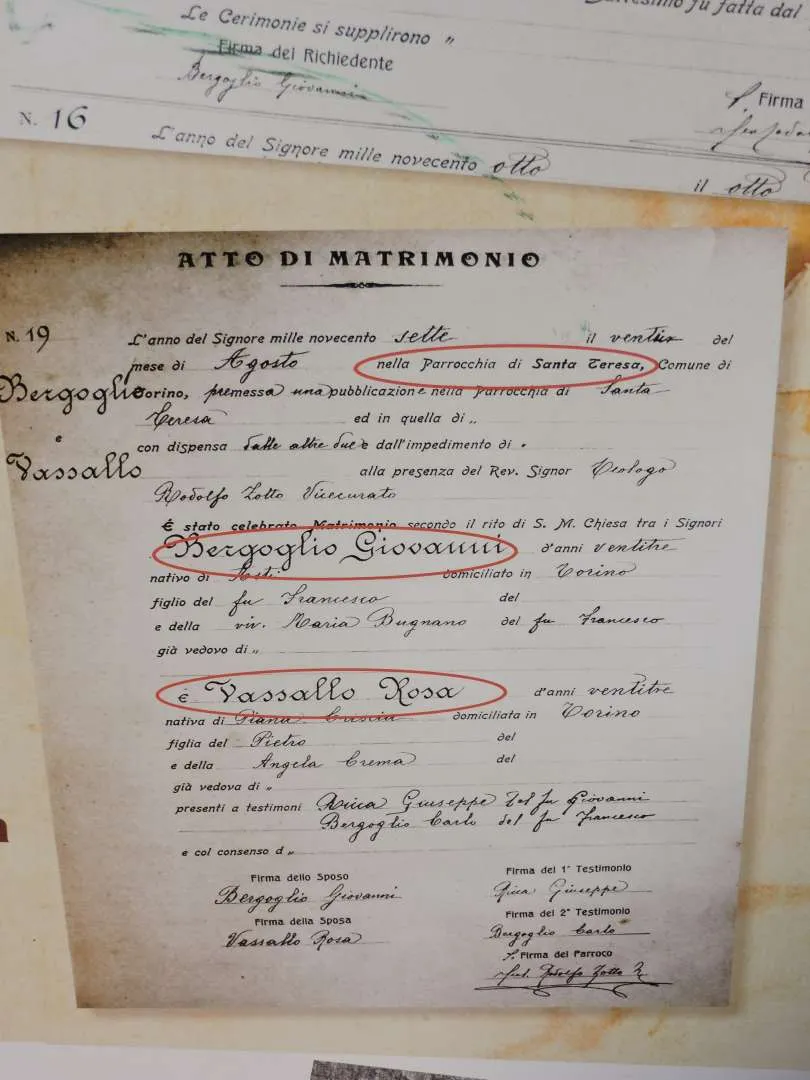 Le Cerimonie si supplirono "
fu fatta dal
Firma del Richiedente
Bergoglio Giovanni
Firma
N. 16
L'anno del Signore mille novecento otto
il otto
ATTO DI MATRIMONIO
N. 19
L'anno del Signore mille novecento sette il del
mese di Agosto nella Parrocchia di Santa Teresa, Comune di
Bergoglio
Torino, premessa una pubblicazione nella Parrocchia di Santa
Teresa ed in quella di "
e
con dispensa dalle altre due e dall'impedimento di "
Vassallo
alla presenza del Rev. Signor Teologo
Rodolfo Zotto Vicecurato
È stato celebrato Matrimonio secondo il rito di S. M. Chiesa tra i Signori
Bergoglio Giovanni d'anni ventitre
nativo di Asti domiciliato in Torino
figlio del fu Francesco del
e della viv. Maria Bugnano del fu Francesco
già vedovo di "
e Vassallo Rosa d'anni ventitre
nativa di Piana Crixia domiciliata in Torino
figlia del Pietro del
e della Angela Crema del
già vedova di "
presenti a testimoni Rica Giuseppe del fu Giovanni
Bergoglio Carlo del fu Francesco
e col consenso d "
Firma dello Sposo
Bergoglio Giovanni
Firma della Sposa
Vassallo Rosa
Firma del 1° Testimonio
Rica Giuseppe
Firma del 2° Testimonio
Bergoglio Carlo
Firma del Parroco
Rodolfo Zotto